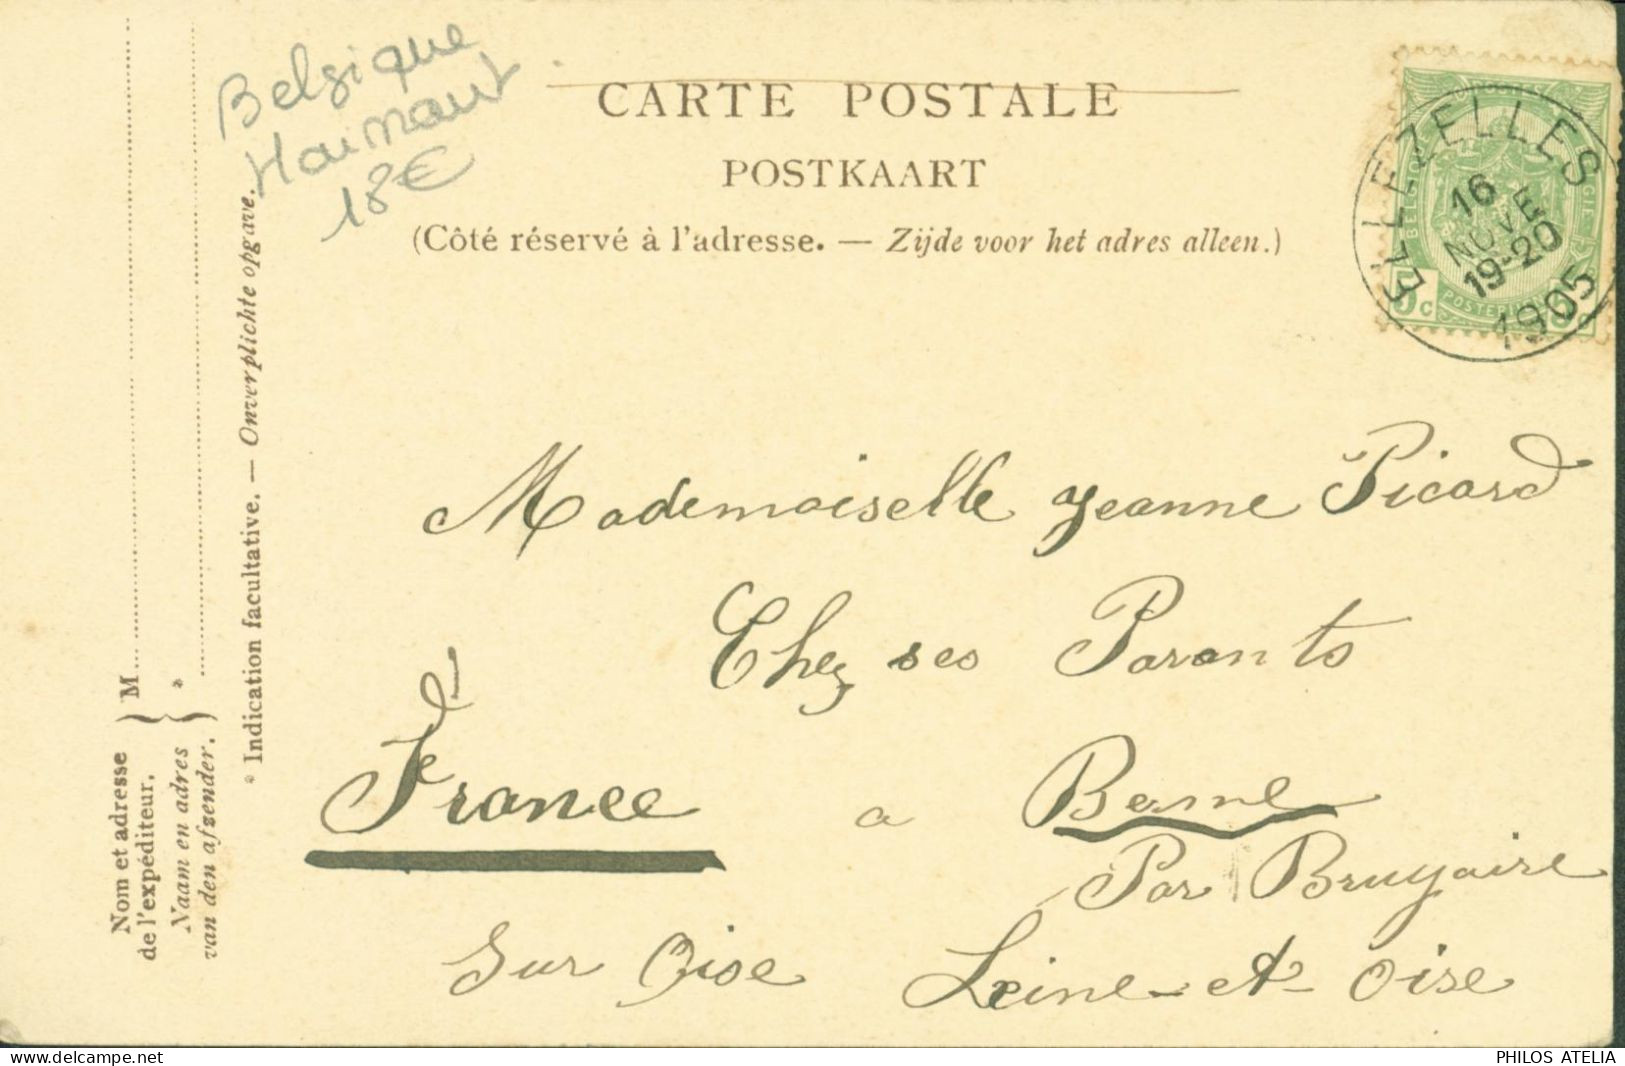 Belgique
Hainaut
18€
CARTE POSTALE
POSTKAART
(Côté réservé à l'adresse. — Zijde voor het adres alleen.)
ELLEZELLES
16
NOVE
19-20
1905
BELGIË
BELGIQUE
POSTERIJEN
5c
Nom et adresse
de l'expéditeur.
Naam en adres
van den afzender.
M
*
* Indication facultative. — Onverplichte opgave.
Mademoiselle Jeanne Picard
Chez ses Parents
France a Berne
Par Bruyaire
Sur Oise Seine-et-Oise
PHILOS ATELIA